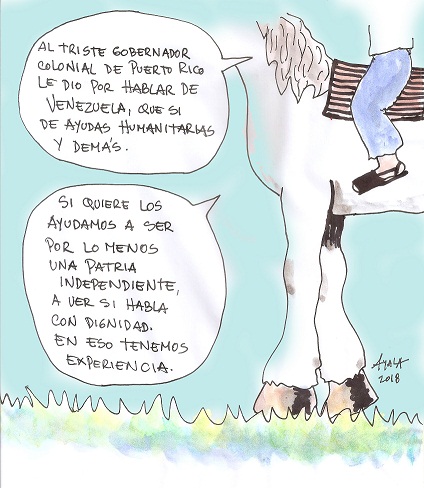 AL TRISTE GOBERNADOR
COLONIAL DE PUERTO RICO
LE DIO POR HABLAR DE
VENEZUELA; QUE SI
DE AYUDAS HUMANITARIAS
Y DEMÁS.
SI QUIERE LOS
AYUDAMOS A SER
POR LO MENOS
UNA PATRIA
INDEPENDIENTE,
A VER SI HABLA
CON DIGNIDAD.
EN ESO TENEMOS
EXPERIENCIA.
AYALA
2018